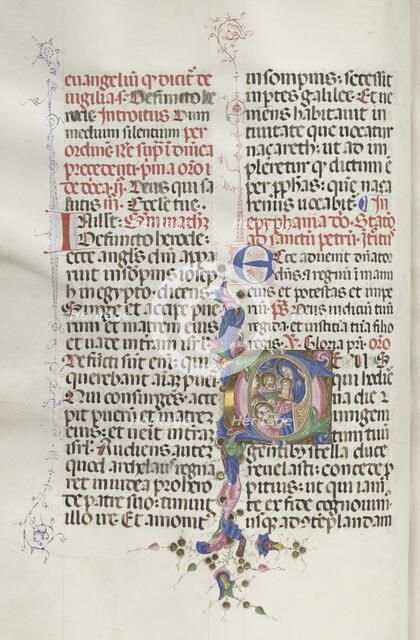 evangeliũ qđ dicit' de
vigilia s. Defuncto he
rode. Introitus Dum
medium silentium per
ordinẽ Rẽ sup̃ i dñica
precedenti. p̃ma oro i
Deus qui sa
lutis
In illo t. S'm matħz
Defuncto herode:
ecce angl's dñi appa
ruit in sopnis iosep
h in egypto. dicens.
Surge et accipe pue
rum et matrem eius
et vade in t'ram isr̃l.
Defũcti sũt eni. qui
querebant aĩam pue
ri. Qui consurgẽs. acce
pit puerũ et matrẽ
eius. et venit in t'ram
isr̃l. Audiens autẽ
quod archelaus regna
ret in iudea pro hero
de patre suo: timuit
illo ire. Et amonit'
in sompnis: secessit
in ptes galilee. Et ve
niens habitauit in
ciuitate que vocatur
nazareth: ut ad im
pleretur quod dictũ est
per pphas: qm̃ naza
renus vocabit'. In
epyphania dñi. Statõ
ad sanctũ petrũ. Ĩtroit'
Ecce aduenit dñator
dñs. et regnũ i manu
eius et potestas et impe
rium. Ps. Deus iudiciũ tuũ
regi da. et iusticia tuã filio
regis. Gloria pr̃i. oro
Deus
qui hodie
rna die v
nigeni
tum tuũ
gentib' stella duce
reuelasti: concede p
pitius: ut qui iam
te ex fide cognouim'
usq ad contẽplandam